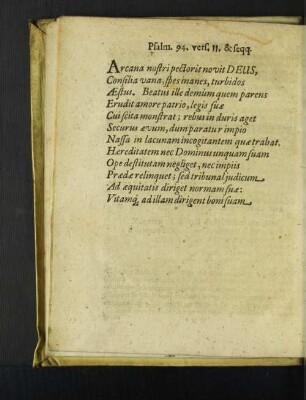 Psalm. 94. vers. 11. & seqq.
Arcana nostri pectoris novit DEUS,
Consilia vana, spes inanes, turbidos
Æstus. Beatus ille demum quem parens
Erudit amore patrio, legis suæ
Cui scita monstrat; rebus in duris aget
Securus ævum, dum paratur impio
Nassa in lacunam incogitantem quæ trahat.
Hereditatem nec Dominus unquam suam
Ope destitutam negliget, nec impiis
Prædæ relinquet; sed tribunal judicum
Ad æquitatis diriget normam suæ:
Vitamq; ad illam dirigent boni suam.